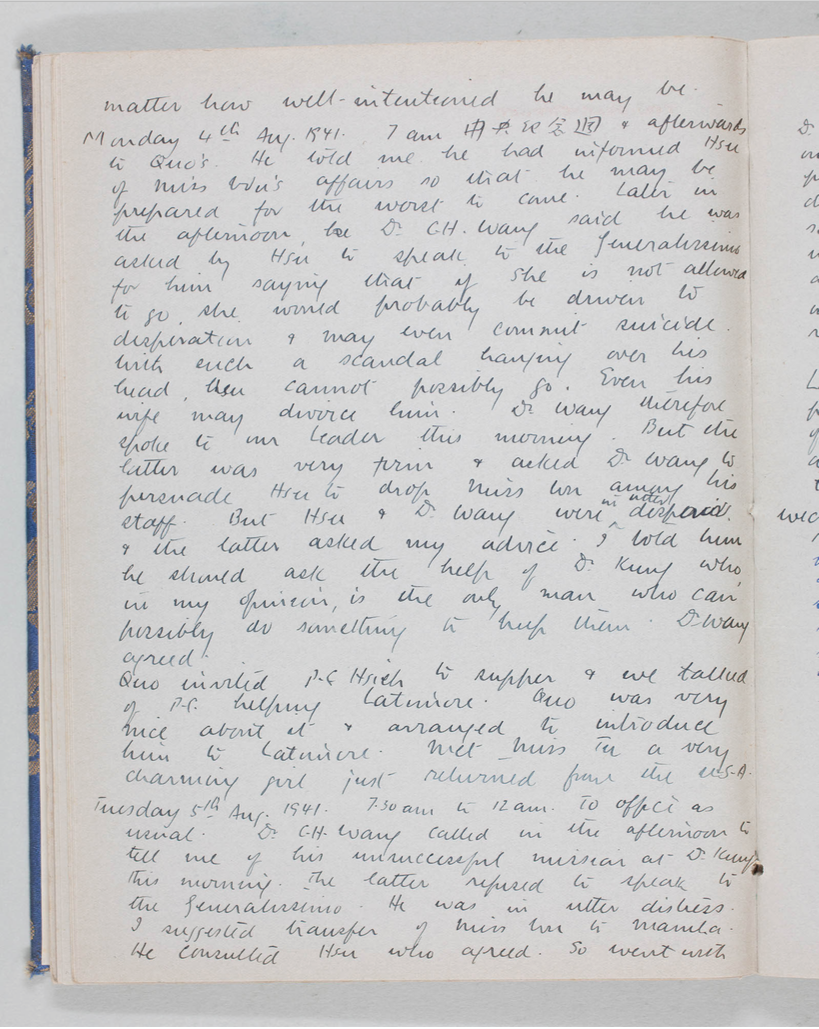 matter how well-intentioned he may be.
Monday 4th Aug. 1941. 7 am & afterwards
to Quo's. He told me he had informed Hsu
of Miss Wu's affairs so that he may be
prepared for the worst to come. Later in
the afternoon, Dr CH. Wang said he was
asked by Hsu to speak to the Generalissimo
for him saying that if she is not allowed
to go she would probably be driven to
disperation & may even commit suicide.
With such a scandal hanging over his
head, Hsu cannot possibly go. Even his
wife may divorce him. Dr Wang therefore
spoke to our Leader this morning. But the
latter was very firm & asked Dr Wang to
persuade Hsu to drop Miss Wu among his
staff. But Hsu & Dr Wang were in utter despair
& the latter asked my advice. I told him
he should ask the help of Dr Kung who,
in my opinion, is the only man who can
possibly do something to help them. Dr Wang
agreed.
Quo invited P-C Hsieh to supper & we talked
of P-C. helping Latimore. Quo was very
nice about it & arranged to introduce
him to Latimore. Met Miss Tu a very
charming girl just returned from the U.S.A.
Tuesday 5th Aug. 1941. 7.30 am to 12 am. To office as
usual. Dr CH. Wang called in the afternoon to
tell me of his unsuccessful mission at Dr Kung
this morning. The latter refused to speak to
the Generalissimo. He was in utter distress.
I suggested transfer of Miss Wu to Manila.
He consulted Hsu who agreed. So went with